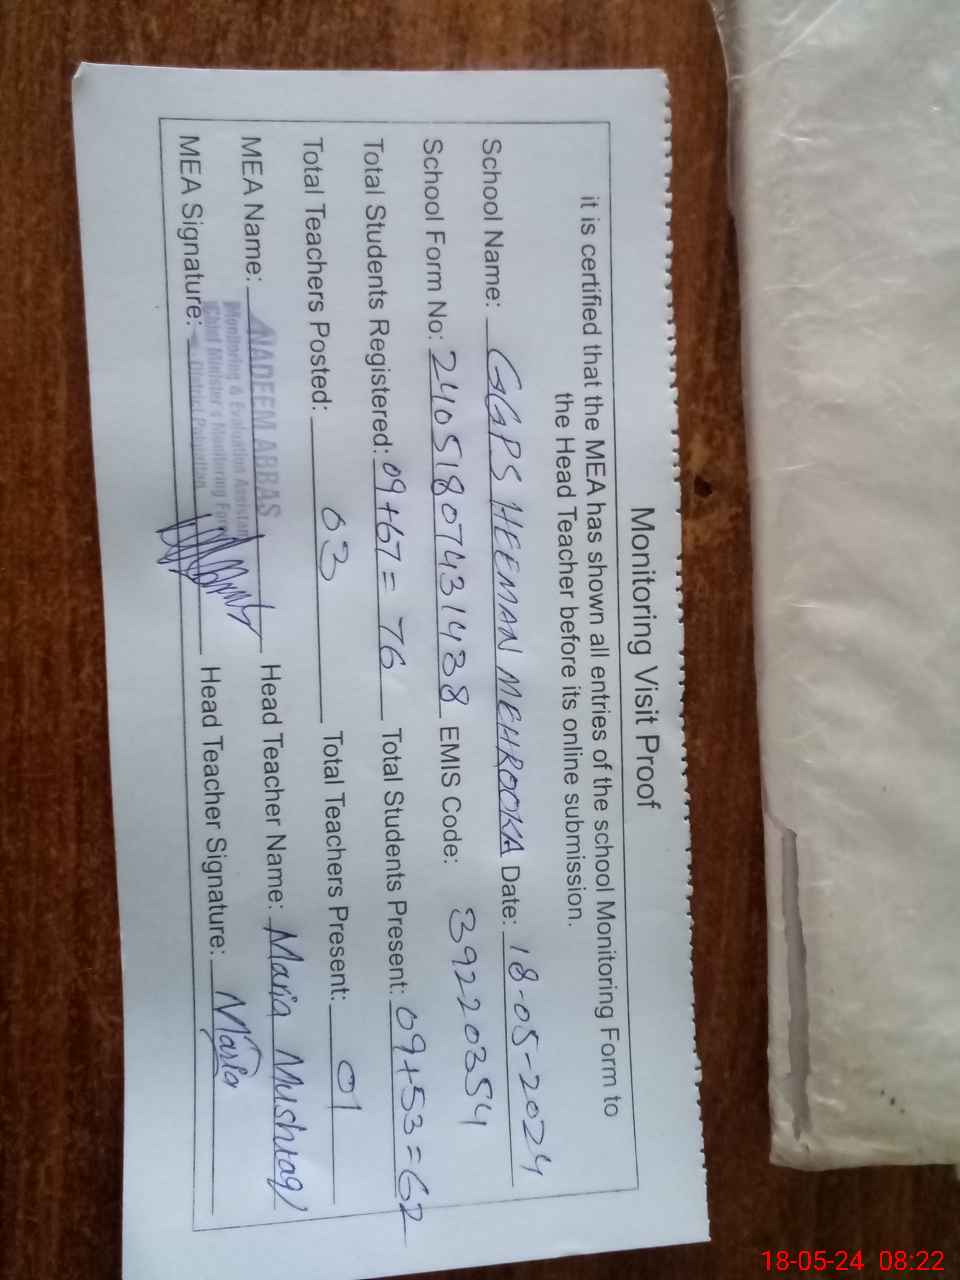 Monitoring Visit Proof
it is certified that the MEA has shown all entries of the school Monitoring Form to
the Head Teacher before its online submission.
School Name: GGPS HEEMAN MEHROOKA Date: 18-05-2024
School Form No: 24051807431438 EMIS Code: 39220354
Total Students Registered: 09+67=76 Total Students Present: 09+53=62
Total Teachers Posted: 03 Total Teachers Present: 01
MEA Name: NADEEM ABBAS Head Teacher Name: Maria Mushtaq
Monitoring & Evaluation Assistant
Chief Minister's Monitoring Force
District Pakpattan
MEA Signature: Head Teacher Signature: Maria
18-05-24 08:22